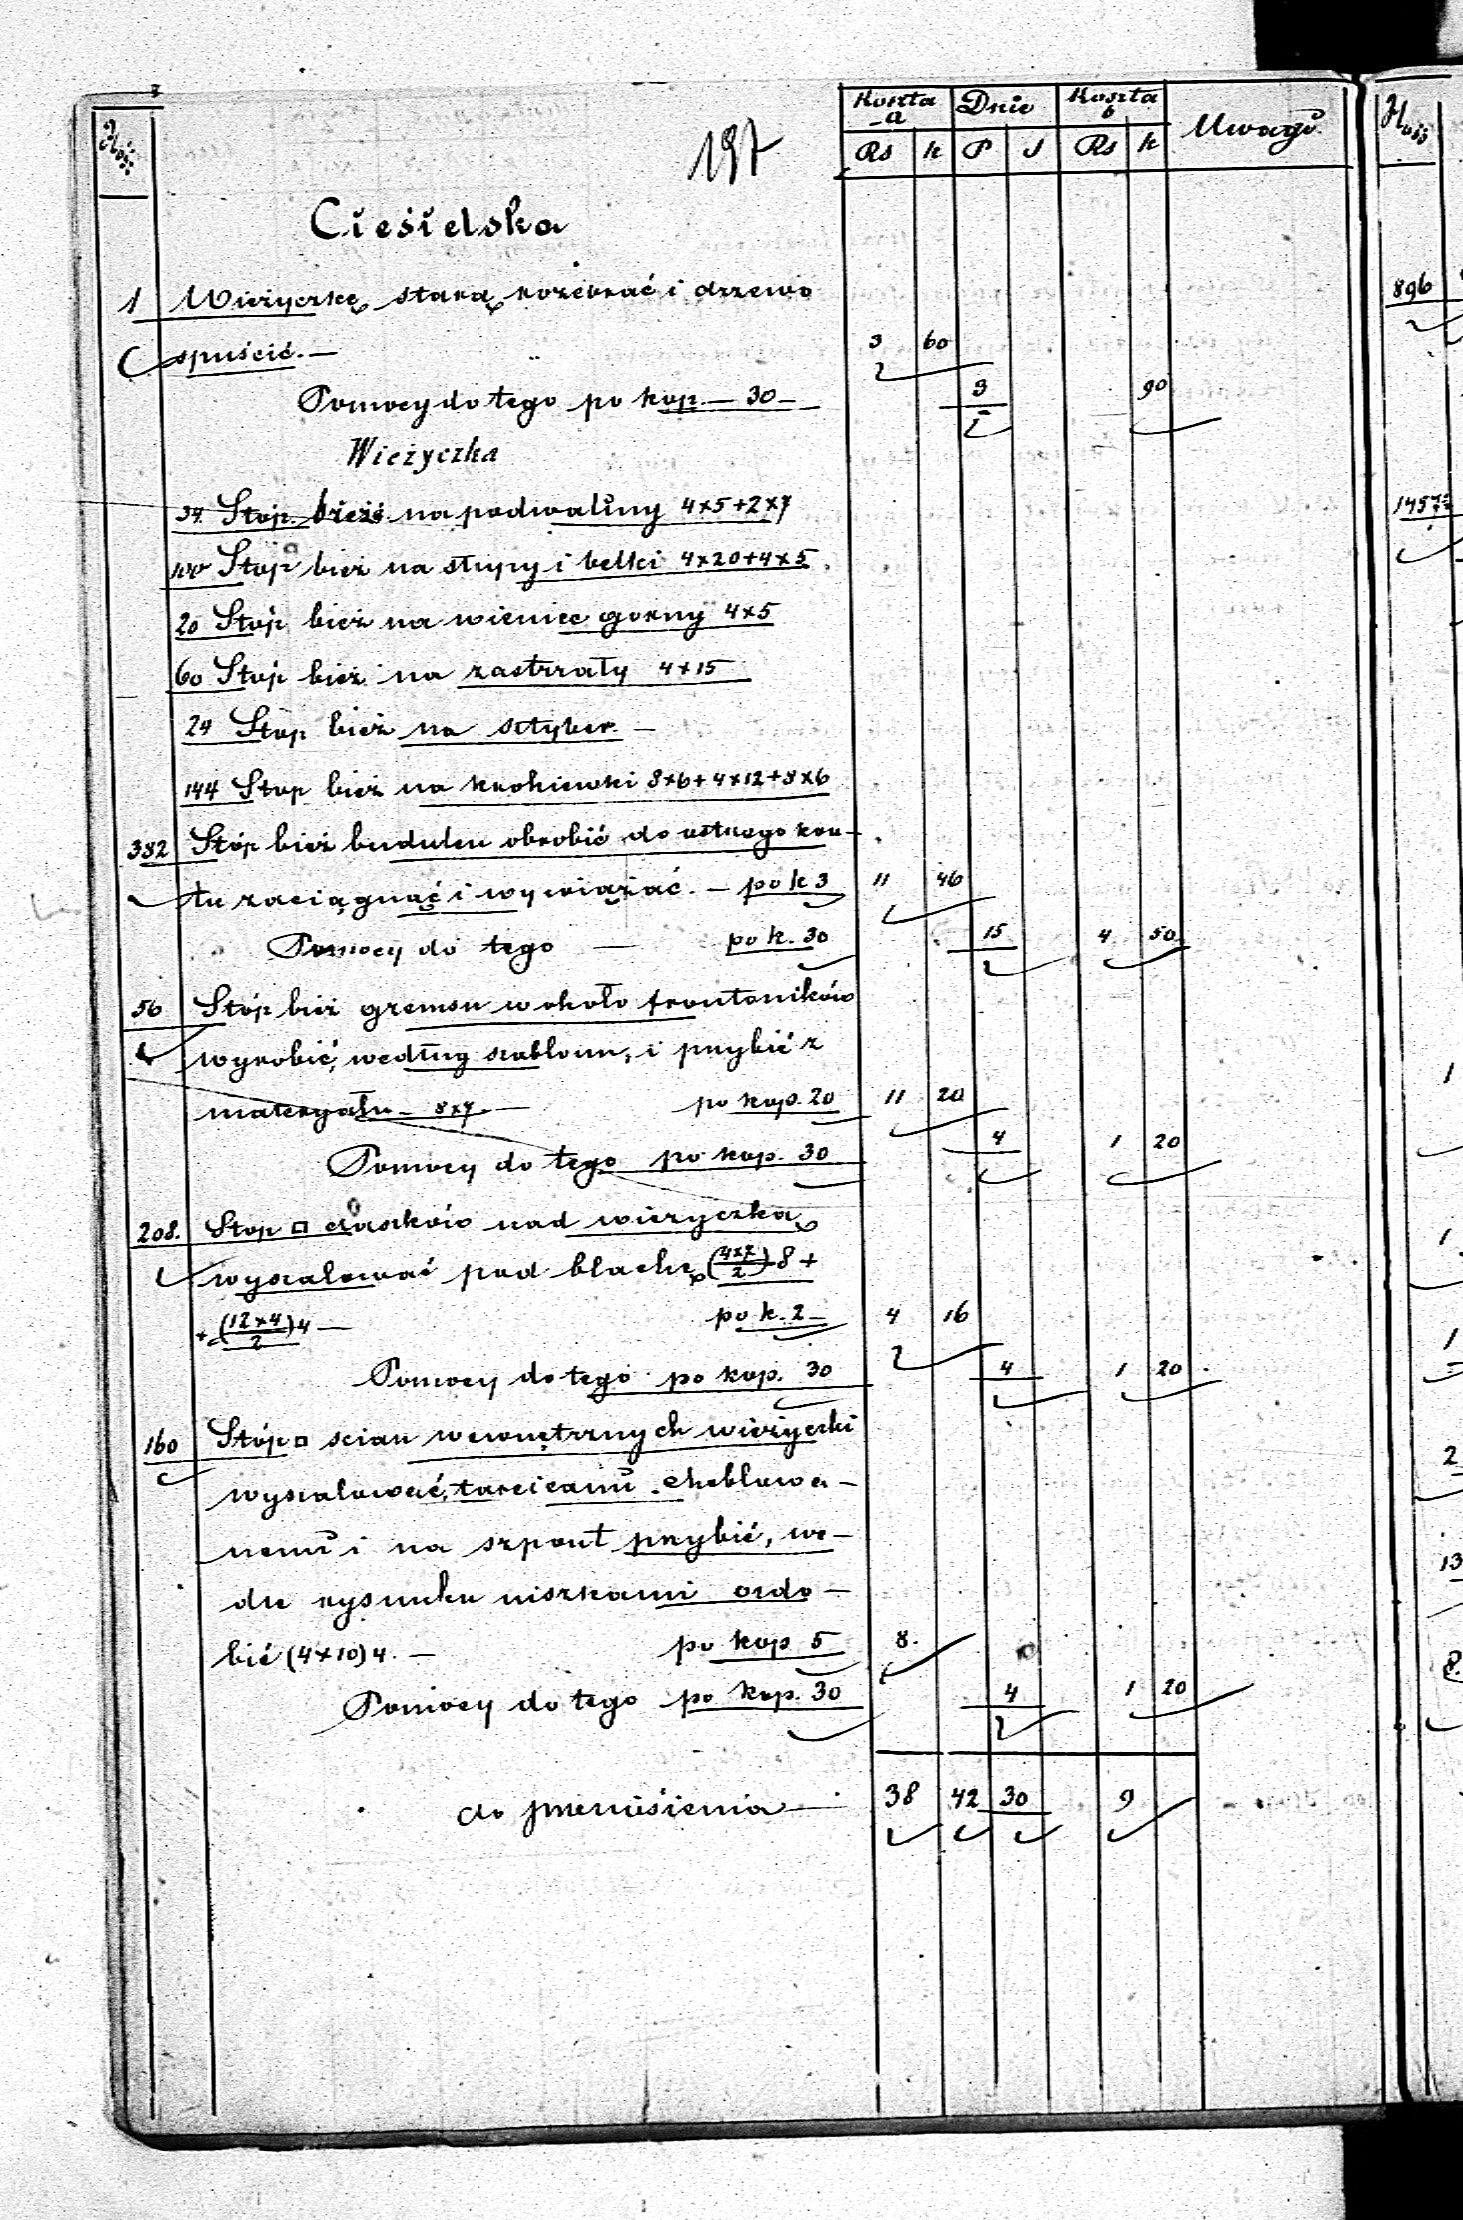 Ilość
197
Koszta a | Dnie | Koszta b | Uwagi
Rs | k | P | J | Rs | k
Ciesielska
1 Wieżyczkę starą rozebrać i drzewo
spuścić. — 3 60
Pomocy do tego po kop. — 30 — 3 90
Wieżyczka
34 Stóp. bież. na podwaliny 4×5+2×7
100 Stóp bież na słupy i belki 4×20+4×5
20 Stóp bież na wieniec gorny 4×5
60 Stóp bież na zastrzały 4×15
24 Stop bież na sztyber. —
144 Stop bież na krokiewki 8×6+4×12+8×6
382 Stóp bież budulcu obrobić do ostrego kan-
tu zaciągnąć i wywiązać. — po k 3 11 46
Pomocy do tego — po k. 30 15 4 50
56 Stóp bież gzemsu wokoło frontoników
wyrobić, według szablonu, i przybić z
materyału — 8×7. — po kop. 20 11 20
Pomocy do tego po kop. 30 4 1 20
208. Stop □ daszków nad wieżyczką
wyszalować pod blachę (4×7/2) 8 +
+ (12×4/2) 4 — po k. 2 — 4 16
Pomocy do tego po kop. 30 4 1 20
160 Stóp □ scian wewnętrznych wieżyczki
wyszalować, tarcicami heblowa-
nemi i na szpont przybić, we-
dle rysunku niszkami ozdo-
bić (4×10) 4. — po kop 5 8.
Pomocy do tego po kop. 30 4 1 20
do przeniesienia — 38 42 30 9
Ilość
896
1
1
1
2
13
8.